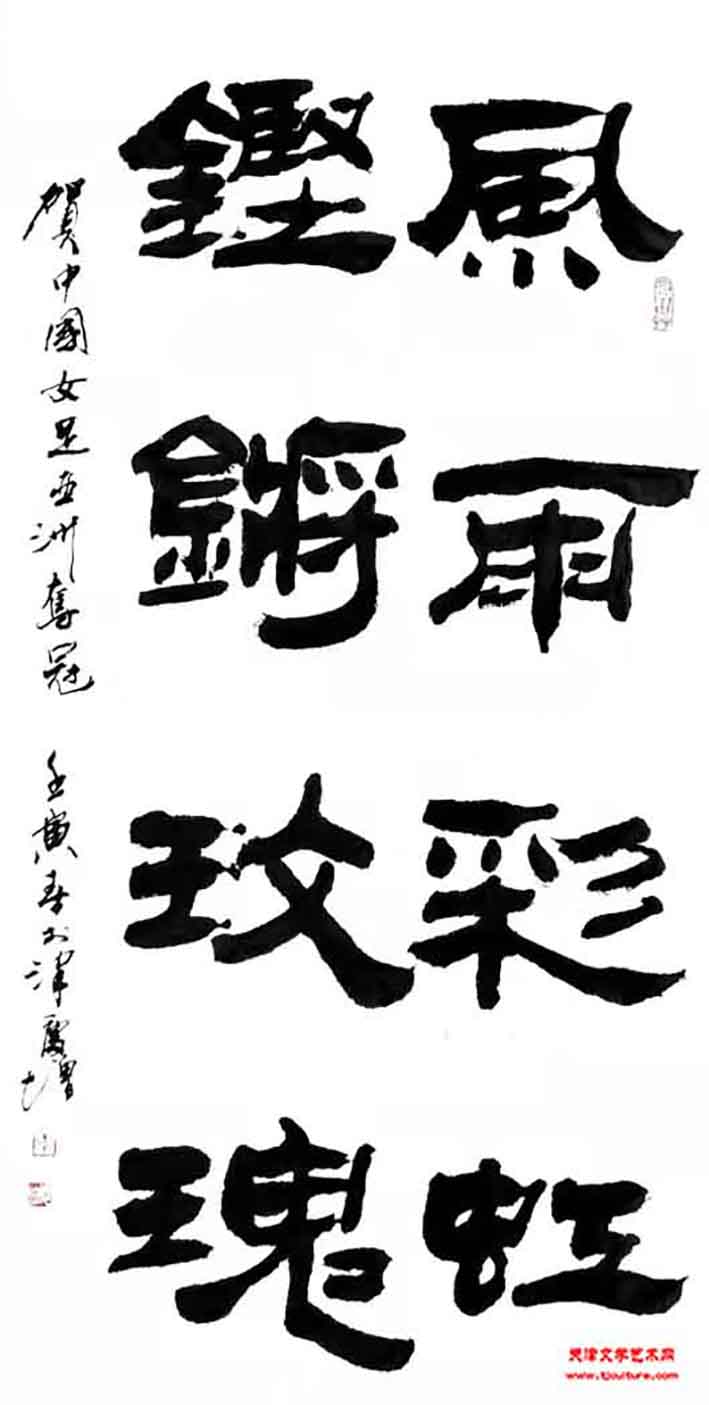 風雨彩虹
鏗鏘玫瑰
賀中國女足亞洲奪冠
壬寅春於津
天津文学艺术网
www.tjculture.com